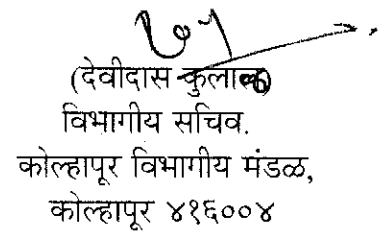 (देवीदास कुलाल)
विभागीय सचिव.
कोल्हापूर विभागीय मंडळ,
कोल्हापूर ४१६००४